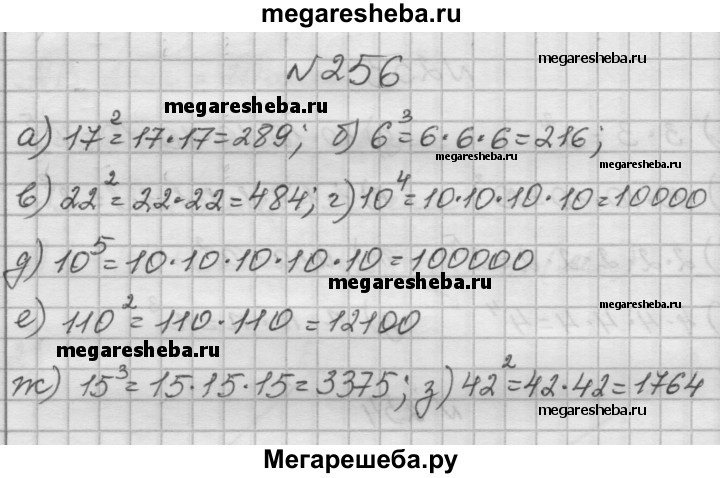 megaresheba.ru
№256
megaresheba.ru
megaresheba.ru
а) 17²=17·17=289; б) 6³=6·6·6=216;
megaresheba.ru
в) 22²=22·22=484; г) 10⁴=10·10·10·10=10000
д) 10⁵=10·10·10·10·10=100000
megaresheba.ru
е) 110²=110·110=12100
megaresheba.ru
megaresheba.ru
ж) 15³=15·15·15=3375; з) 42²=42·42=1764
megaresheba.ru
Мегарешеба.ру